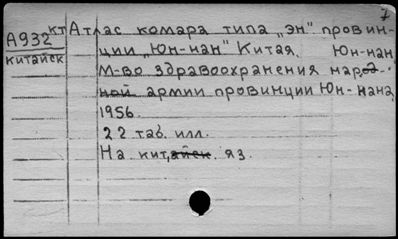 7
А932 кт Атлас комара типа „эн" провин-
китайск ции „Юн-нан" Китая. Юн-нан,
М-во здравоохранения народ-
ной армии провинции Юн-нана,
1956.
22 таб. илл.
На китайск. яз.